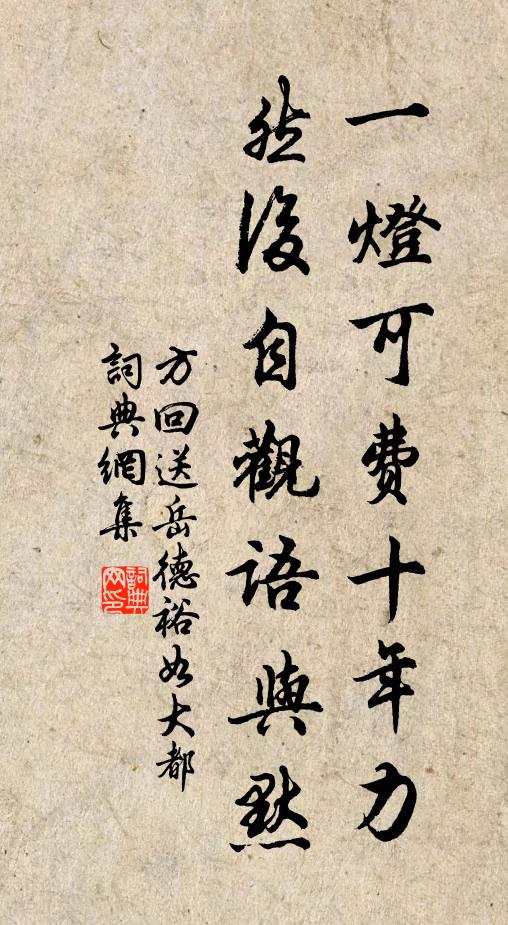 一燈可費十年力
然後自觀語與默
方回送岳德裕如大都
詞典網集
詞典網印